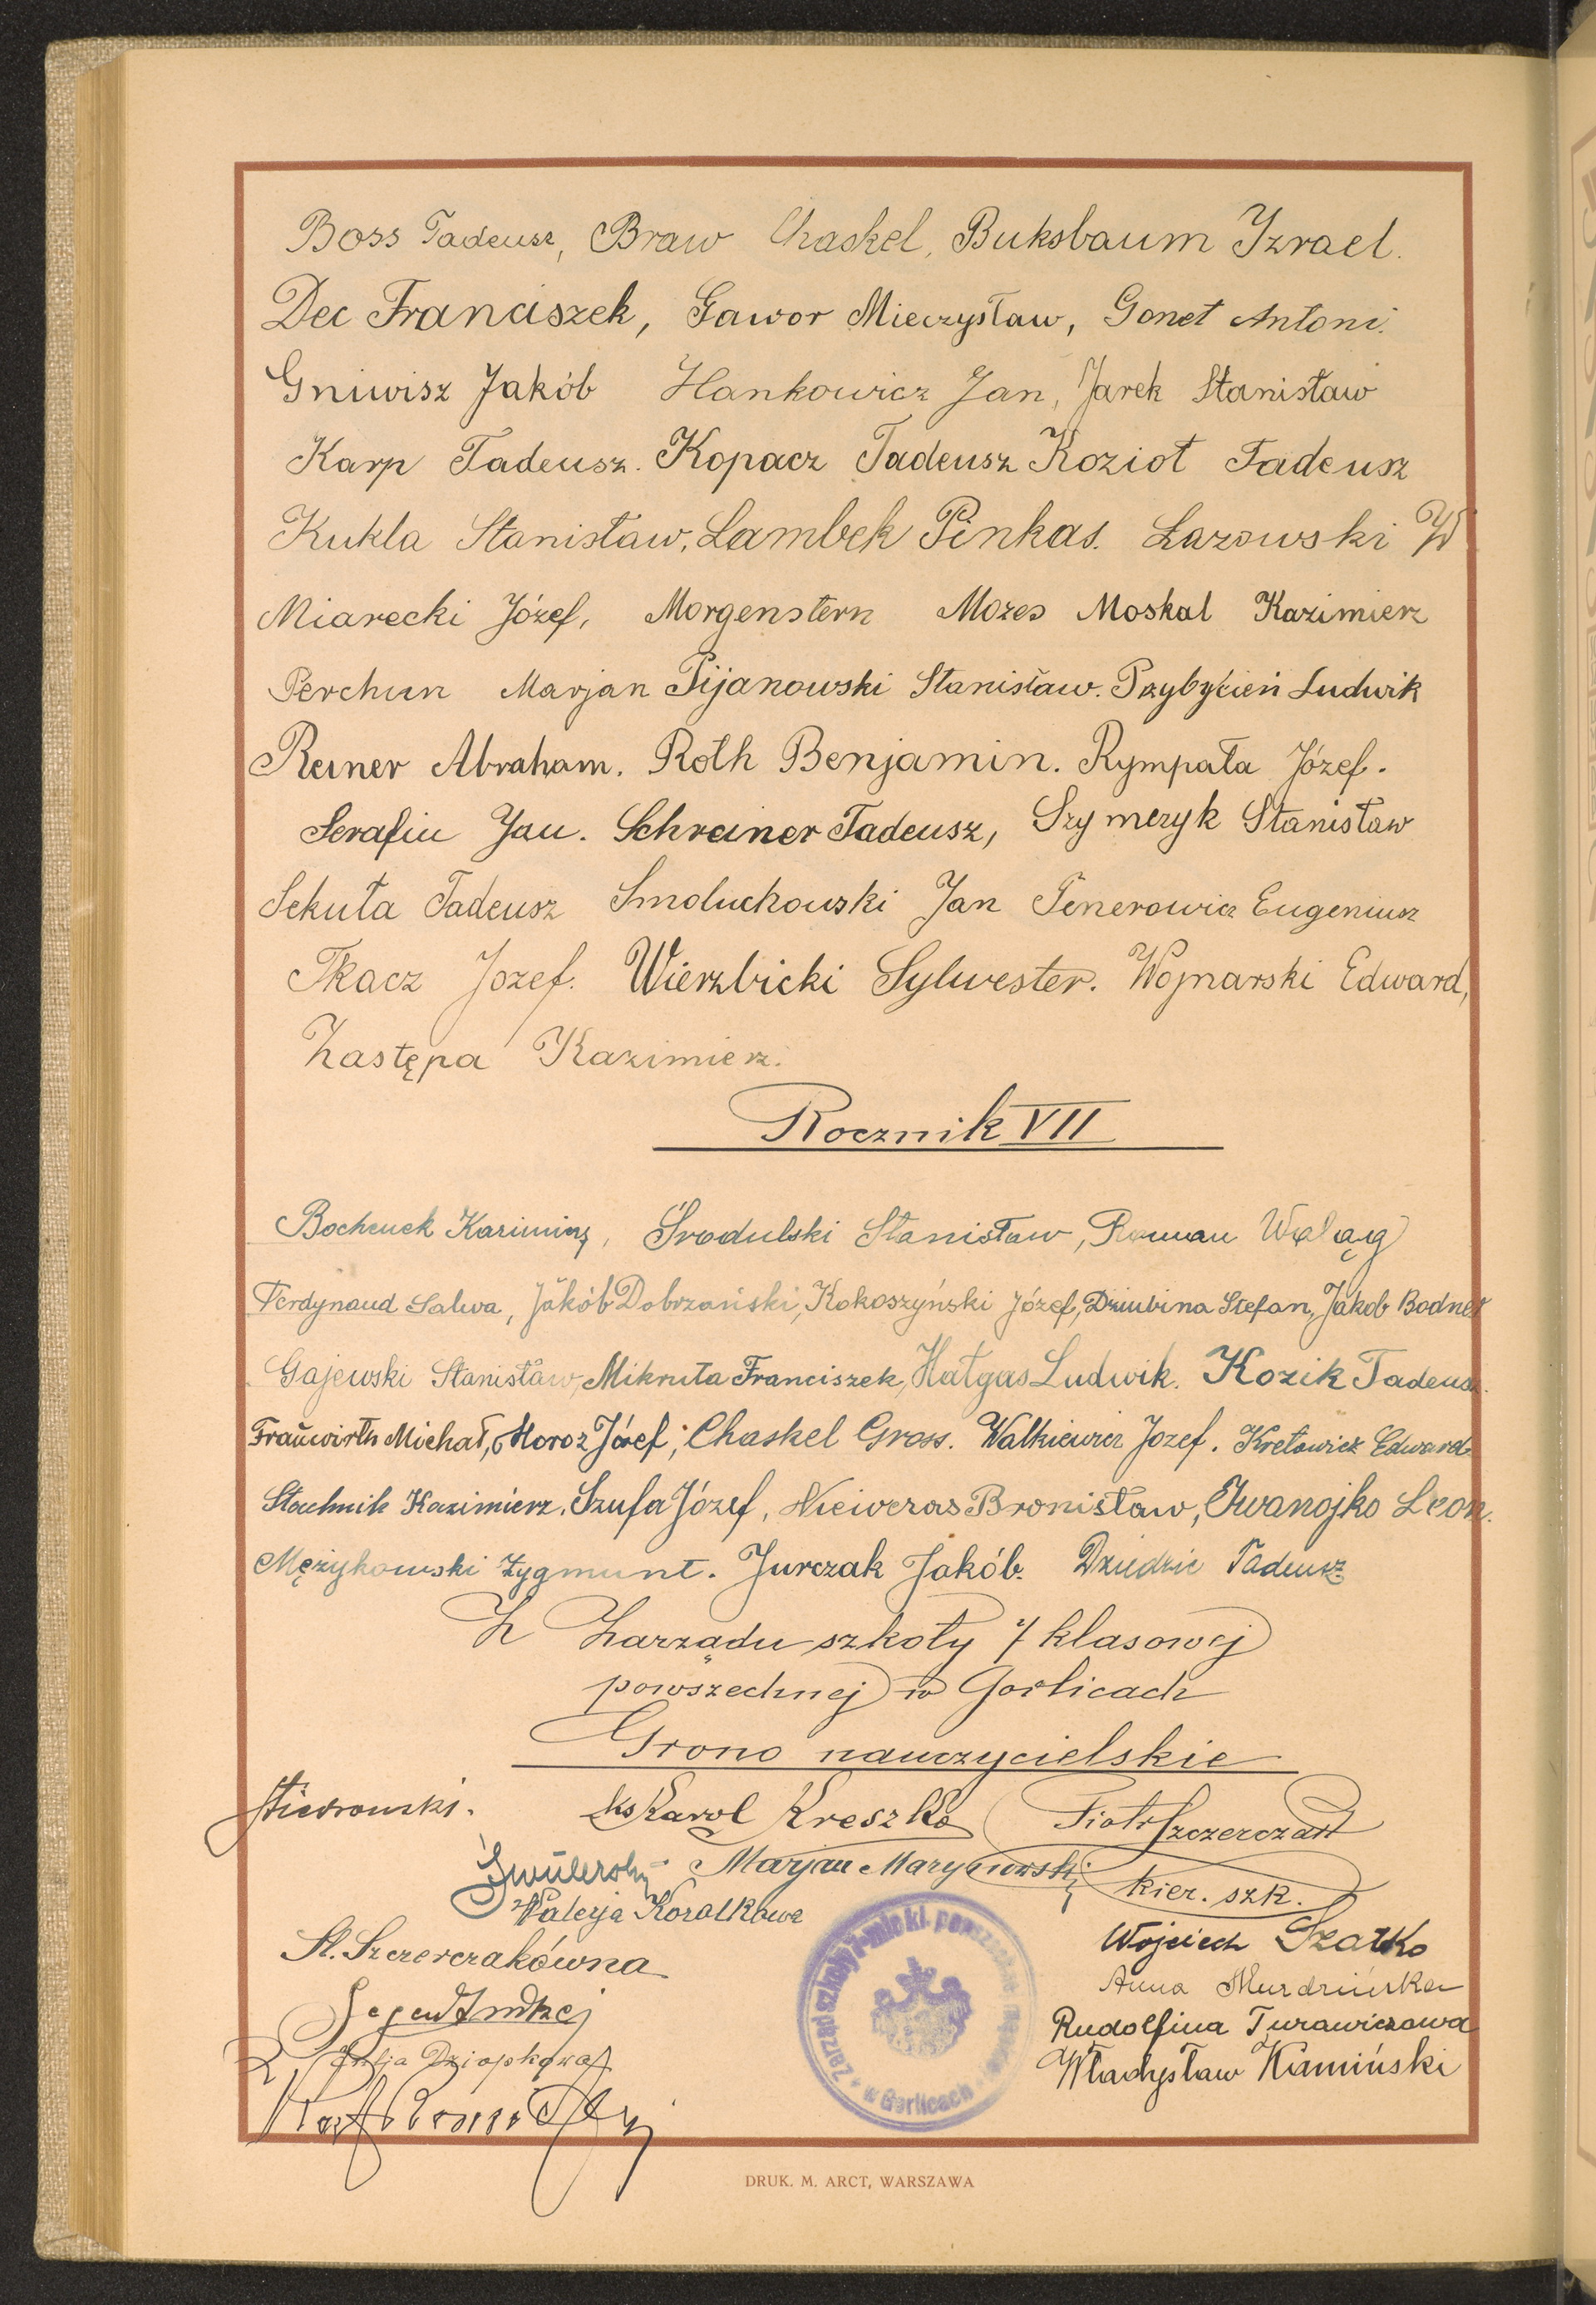 Boss Tadeusz, Braw Chaskel, Buksbaum Izrael.
Dec Franciszek, Gawor Mieczysław, Gonet Antoni.
Gniwisz Jakób Hankowicz Jan, Jarek Stanisław
Karp Tadeusz. Kopacz Tadeusz Kozioł Tadeusz
Kukla Stanisław, Lambek Pinkas. Lazowski W
Miarecki Józef, Morgenstern Mozes Moskal Kazimierz
Perchun Marjan Pijanowski Stanisław. Przybycień Ludwik
Reiner Abraham. Roth Benjamin. Rympała Józef.
Serafin Jan. Schreiner Tadeusz, Szymczyk Stanisław
Sekuła Tadeusz Smoluchowski Jan Tenerowicz Eugeniusz
Tkacz Jozef. Wierzbicki Sylwester. Wojnarski Edward,
Zastępa Kazimierz.
Rocznik VII
Bochenek Kazimierz, Środulski Stanisław, Roman Waląg
Ferdynand Salwa, Jakób Dobrzański, Kokoszyński Józef, Dziubina Stefan, Jakob Bodner
Gajewski Stanisław, Mikruta Franciszek, Hałgas Ludwik. Kozik Tadeusz.
Frauwirth Michał, Moroz Józef, Chaskel Gross. Walkiewicz Jozef. Kretowicz Edward
Stachnik Kazimierz, Szufa Józef, Niewczas Bronisław, Iwanojko Leon.
Mężykowski Zygmunt. Jurczak Jakób. Dziedzic Tadeusz
Z Zarządu szkoły 7 klasowej
powszechnej w Gorlicach
Grono nauczycielskie
Ks Karol Kreszko Piotr Szczerczak
Marjan Marynowski kier. szk.
Walerja Koralkowa
St. Szczerczakówna Wojeich Szatko
Anna Murdzińska
Rudolfina Turawiczowa
Julja Władysław Kamiński
Zarząd szkoły w Gorlicach
DRUK. M. ARCT, WARSZAWA